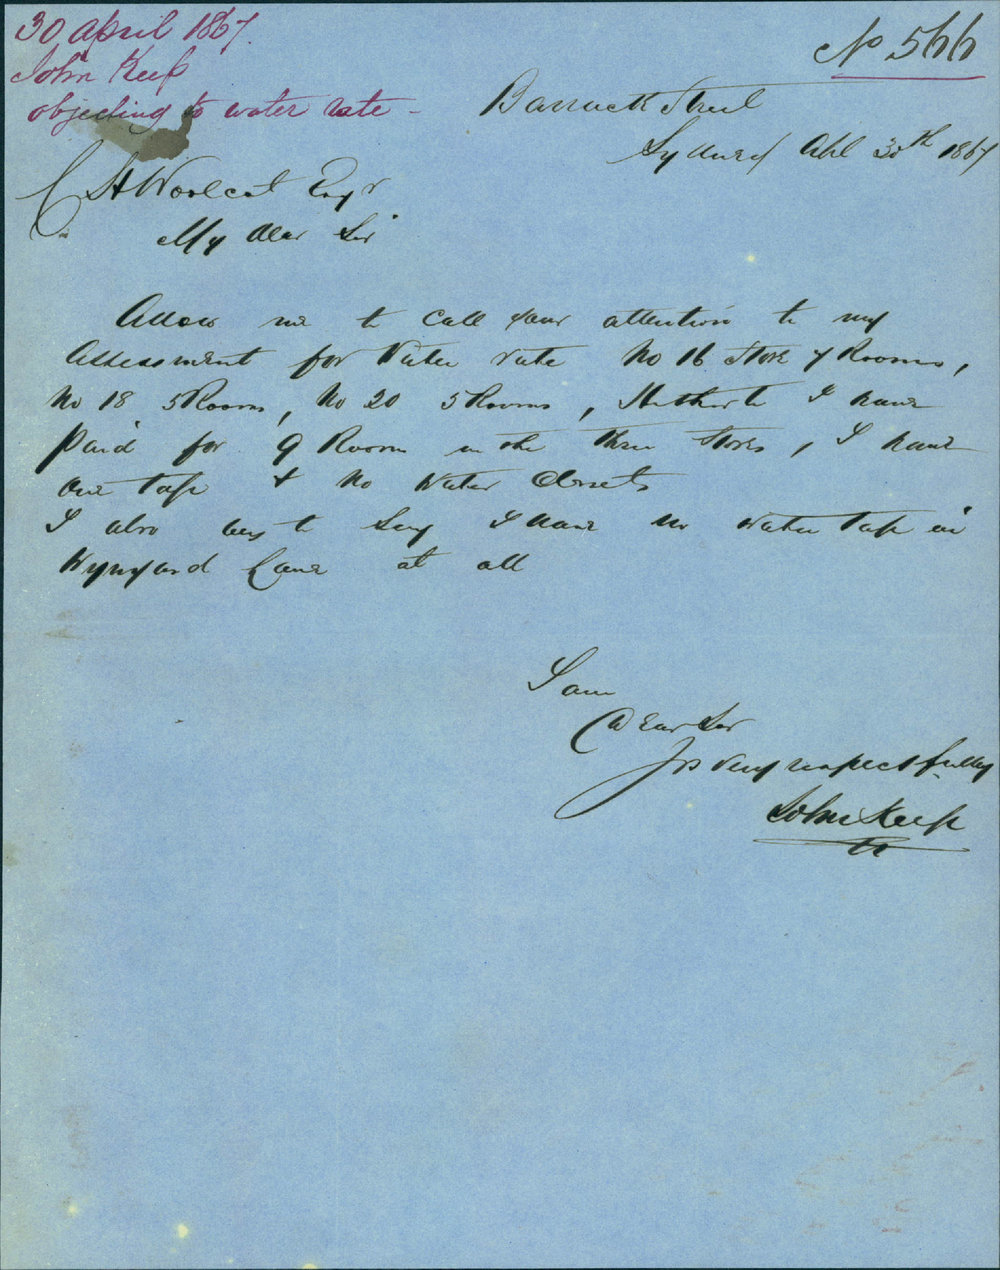 30 April 1867
John Keep
objecting to water rate -
No 566
Barrack Street
Sydney Apl 30th 1867
C H Woolcot Esqr
My dear Sir
Allow me to call your attention to my
Assessment for Water rate No 16 Store 7 Rooms,
No 18 5 Rooms, No 20 5 Rooms, Hitherto I have
Paid for 9 Room in the three Stores, I have
one tap & No Water Closets
I also beg to Say I have no water tap in
Wynyard Lane at all
I am
Dear Sir
Yrs very respectfully
John Keep